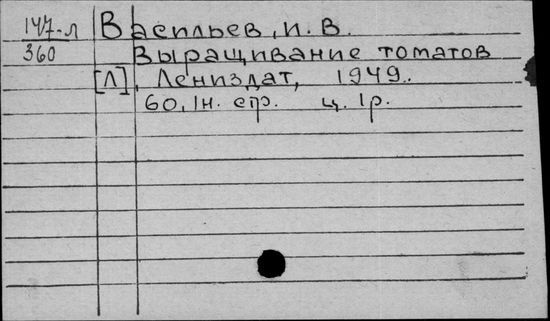 147-л Васильев, И. В.
360 Выращивание томатов
[Л], Лениздат, 1949.
60, 1н. стр. ц. 1р.